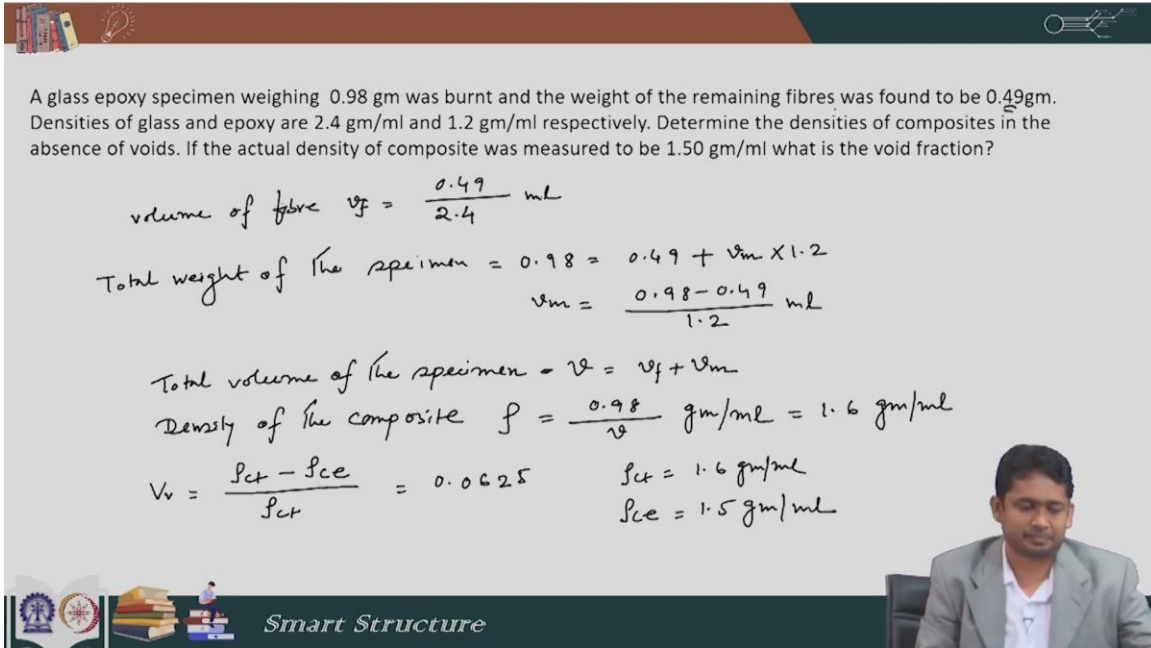 A glass epoxy specimen weighing 0.98 gm was burnt and the weight of the remaining fibres was found to be 0.49gm.
Densities of glass and epoxy are 2.4 gm/ml and 1.2 gm/ml respectively. Determine the densities of composites in the
absence of voids. If the actual density of composite was measured to be 1.50 gm/ml what is the void fraction?
volume of fibre vf = 0.49/2.4 ml
Total weight of the speimen = 0.98 = 0.49 + vm × 1.2
vm = (0.98 - 0.49)/1.2 ml
Total volume of the specimen - v = vf + vm
Density of the composite ρ = 0.98/v gm/ml = 1.6 gm/ml
Vv = (ρct - ρce)/ρct = 0.0625
ρct = 1.6 gm/ml
ρce = 1.5 gm/ml
Smart Structure